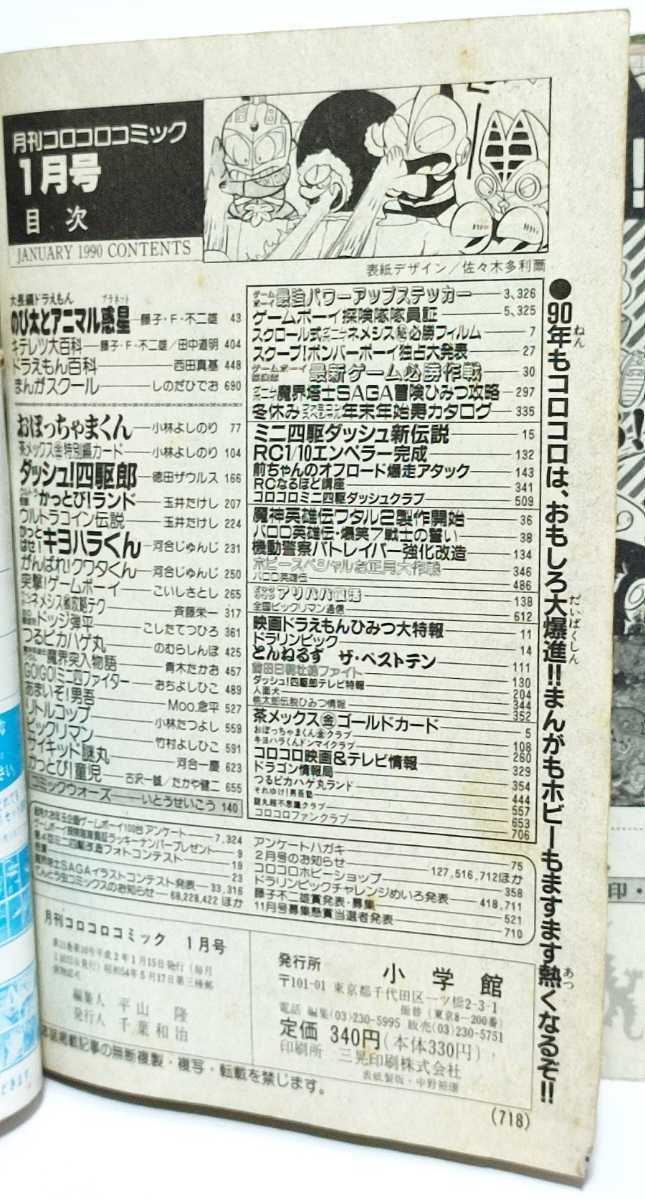 月刊コロコロコミック
1月号
目次
JANUARY 1990 CONTENTS
表紙デザイン/佐々木多利爾
大長編ドラえもん
のび太とアニマル惑星 プラネット 藤子・F・不二雄 43
キテレツ大百科 藤子・F・不二雄/田中道明 404
ドラえもん百科 西田真基 448
まんがスクール しのだひでお 690
おぼっちゃまくん 小林よしのり 77
茶メックス㊎特別編カード 小林よしのり 104
ダッシュ!四駆郎 徳田ザウルス 166
かっとび!ランド 玉井たけし 207
ウルトラコイン伝説 玉井たけし 224
かっとばせ!キヨハラくん 河合じゅんじ 231
がんばれ!クワタくん 河合じゅんじ 250
突撃!ゲームボーイ こいしさとし 265
ネメシス㊙攻略テク 斉藤栄一 317
ドッジ弾平 こしたてつひろ 361
つるピカハゲ丸 のむらしんぼ 425
魔界突入物語 青木たかお 457
GO!GO!ミニ四ファイター おちよしひこ 489
あまいぞ!男吾 Moo.念平 527
リトルコップ 小林たつよし 559
ビックリマン 竹村よしひこ 591
サイキッド謎丸 河合一慶 623
かっとび!童児 古沢一誠/たかや健二 655
コミックウォーズ いとうせいこう 140
ゲームボーイ最強パワーアップステッカー 3,326
ゲームボーイ探険隊隊員証 5,325
スクロール式ゲームボーイネメシス㊙必勝フィルム 7
スクープ!ボンバーボーイ独占大発表 27
最新ゲーム必勝作戦 30
魔界塔士SAGA冒険ひみつ攻略 297
冬休み年末年始寿カタログ 335
ミニ四駆ダッシュ新伝説 15
RC1/10エンペラー完成 132
前ちゃんのオフロード爆走アタック 143
RCなるほど講座 341
コロコロミニ四駆ダッシュクラブ 509
魔神英雄伝ワタル2製作開始 36
パロロ英雄伝・爆笑7戦士の誓い 38
機動警察パトレイバー強化改造 134
ホビースペシャルお正月大作戦 346
パロロ英雄伝 486
アリババ 138
全国ビックリマン通信 612
映画ドラえもんひみつ大特報 11
ドラリンピック 14
とんねるず ザ・ベストテン 111
ダッシュ!四駆郎テレビ特報 130
人面犬 204
桃太郎伝説ひみつ情報 344
352
茶メックス㊎ゴールドカード 5
おぼっちゃまくん金クラブ 108
キヨハラくんドンマイクラブ 260
コロコロ映画&テレビ情報 329
ドラゴン情報局 354
つるピカハゲ丸ランド 444
それゆけ!男吾塾 557
謎丸超不思議クラブ 653
コロコロファンクラブ 706
アンケート 7,324
ゲームボーイ探険隊隊員証ラッキーナンバープレゼント 9
第4回ミニ四駆改造フォトコンテスト 19
23
魔界塔士SAGAイラストコンテスト発表 33,316
てんとう虫コミックスのお知らせ 68,228,422ほか
アンケートハガキ 75
2月号のお知らせ 127,516,712ほか
コロコロホビーショップ 358
ドラリンピックチャレンジめいろ発表 418,711
藤子不二雄賞発表・募集 521
11月号募集懸賞当選者発表 710
月刊コロコロコミック 1月号
平成2年1月15日発行(毎月1回15日発行) 昭和54年5月17日第三種郵便物認可
編集人 平山 隆
発行人 千葉和治
発行所 小学館
〒101-01 東京都千代田区一ツ橋2-3-1
振替(東京8-200番)
電話 編集(03)230-5995 販売(03)230-5751
定価340円(本体330円)
印刷所 三晃印刷株式会社
表紙製版・中野
本誌掲載記事の無断複製・複写・転載を禁じます。
(718)
●90年もコロコロは、おもしろ大爆進!!まんがもホビーもますます熱くなるぞ!!
ねん
だいばくしん
あつ
印・